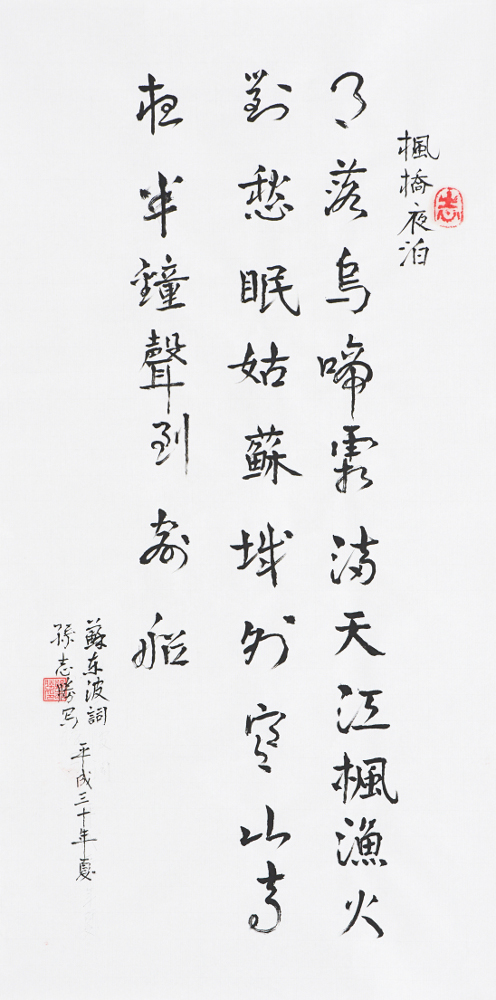 楓橋夜泊
志
月落烏啼霜滿天江楓漁火
對愁眠姑蘇城外寒山寺
夜半鐘聲到客船
蘇东波詞
孫志勝写
平成三十年夏